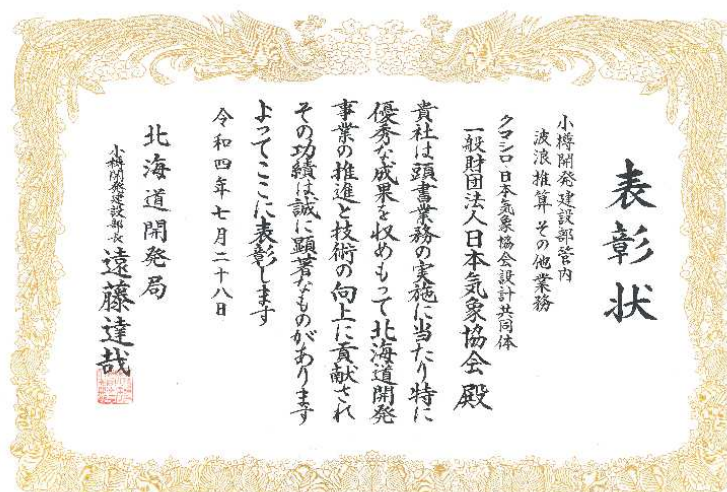 表彰状
小樽開発建設部管内
波浪推算その他業務
クマシロ・日本気象協会設計共同体
一般財団法人日本気象協会殿
貴社は頭書業務の実施に当たり特に
優秀な成果を収めもって北海道開発
事業の推進と技術の向上に貢献され
その功績は誠に顕著なものがあります
よってここに表彰します
令和四年七月二十八日
北海道開発局
小樽開発建設部長 遠藤達哉